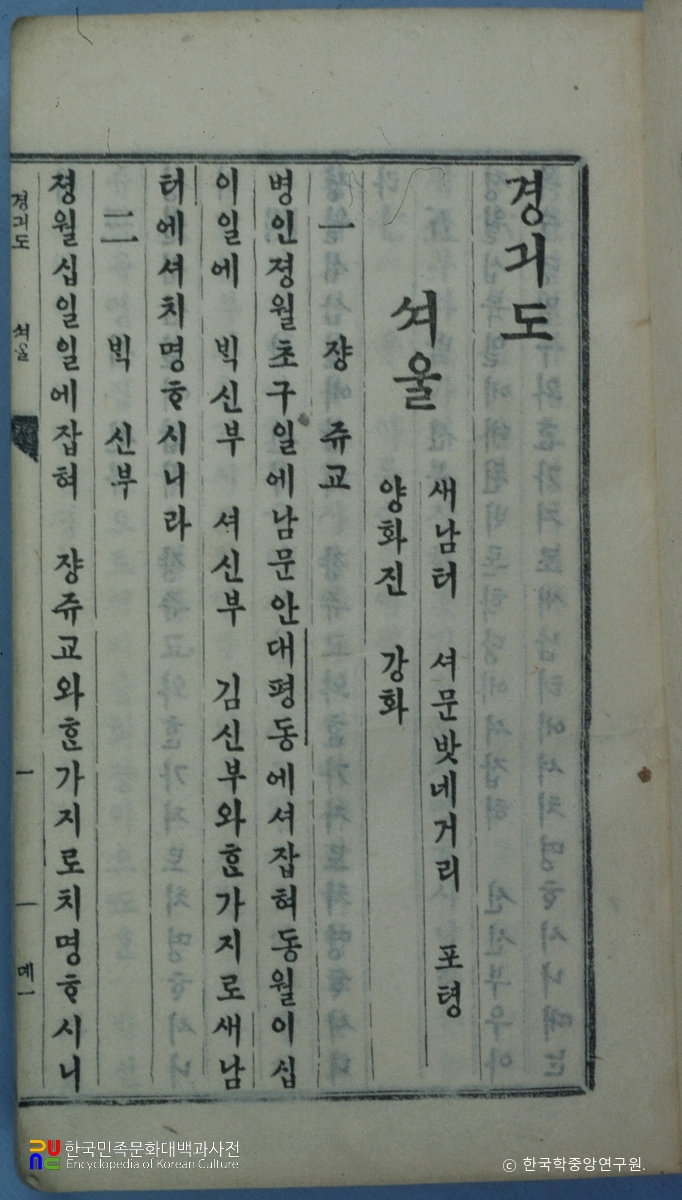 경긔도
셔울
새남터 셔문밧네거리 포텽
양화진 강화
一 쟝 쥬교
병인졍월초구일에남문안대평동에셔잡혀동월이십
이일에 빅신부 셔신부 김신부와ᄒᆞᆫ가지로새남
터에셔치명ᄒᆞ시니라
二 빅 신부
졍월십일일에잡혀 쟝쥬교와ᄒᆞᆫ가지로치명ᄒᆞ시니
경긔도 셔울 一 뎨一
한국민족문화대백과사전
Encyclopedia of Korean Culture
© 한국학중앙연구원.